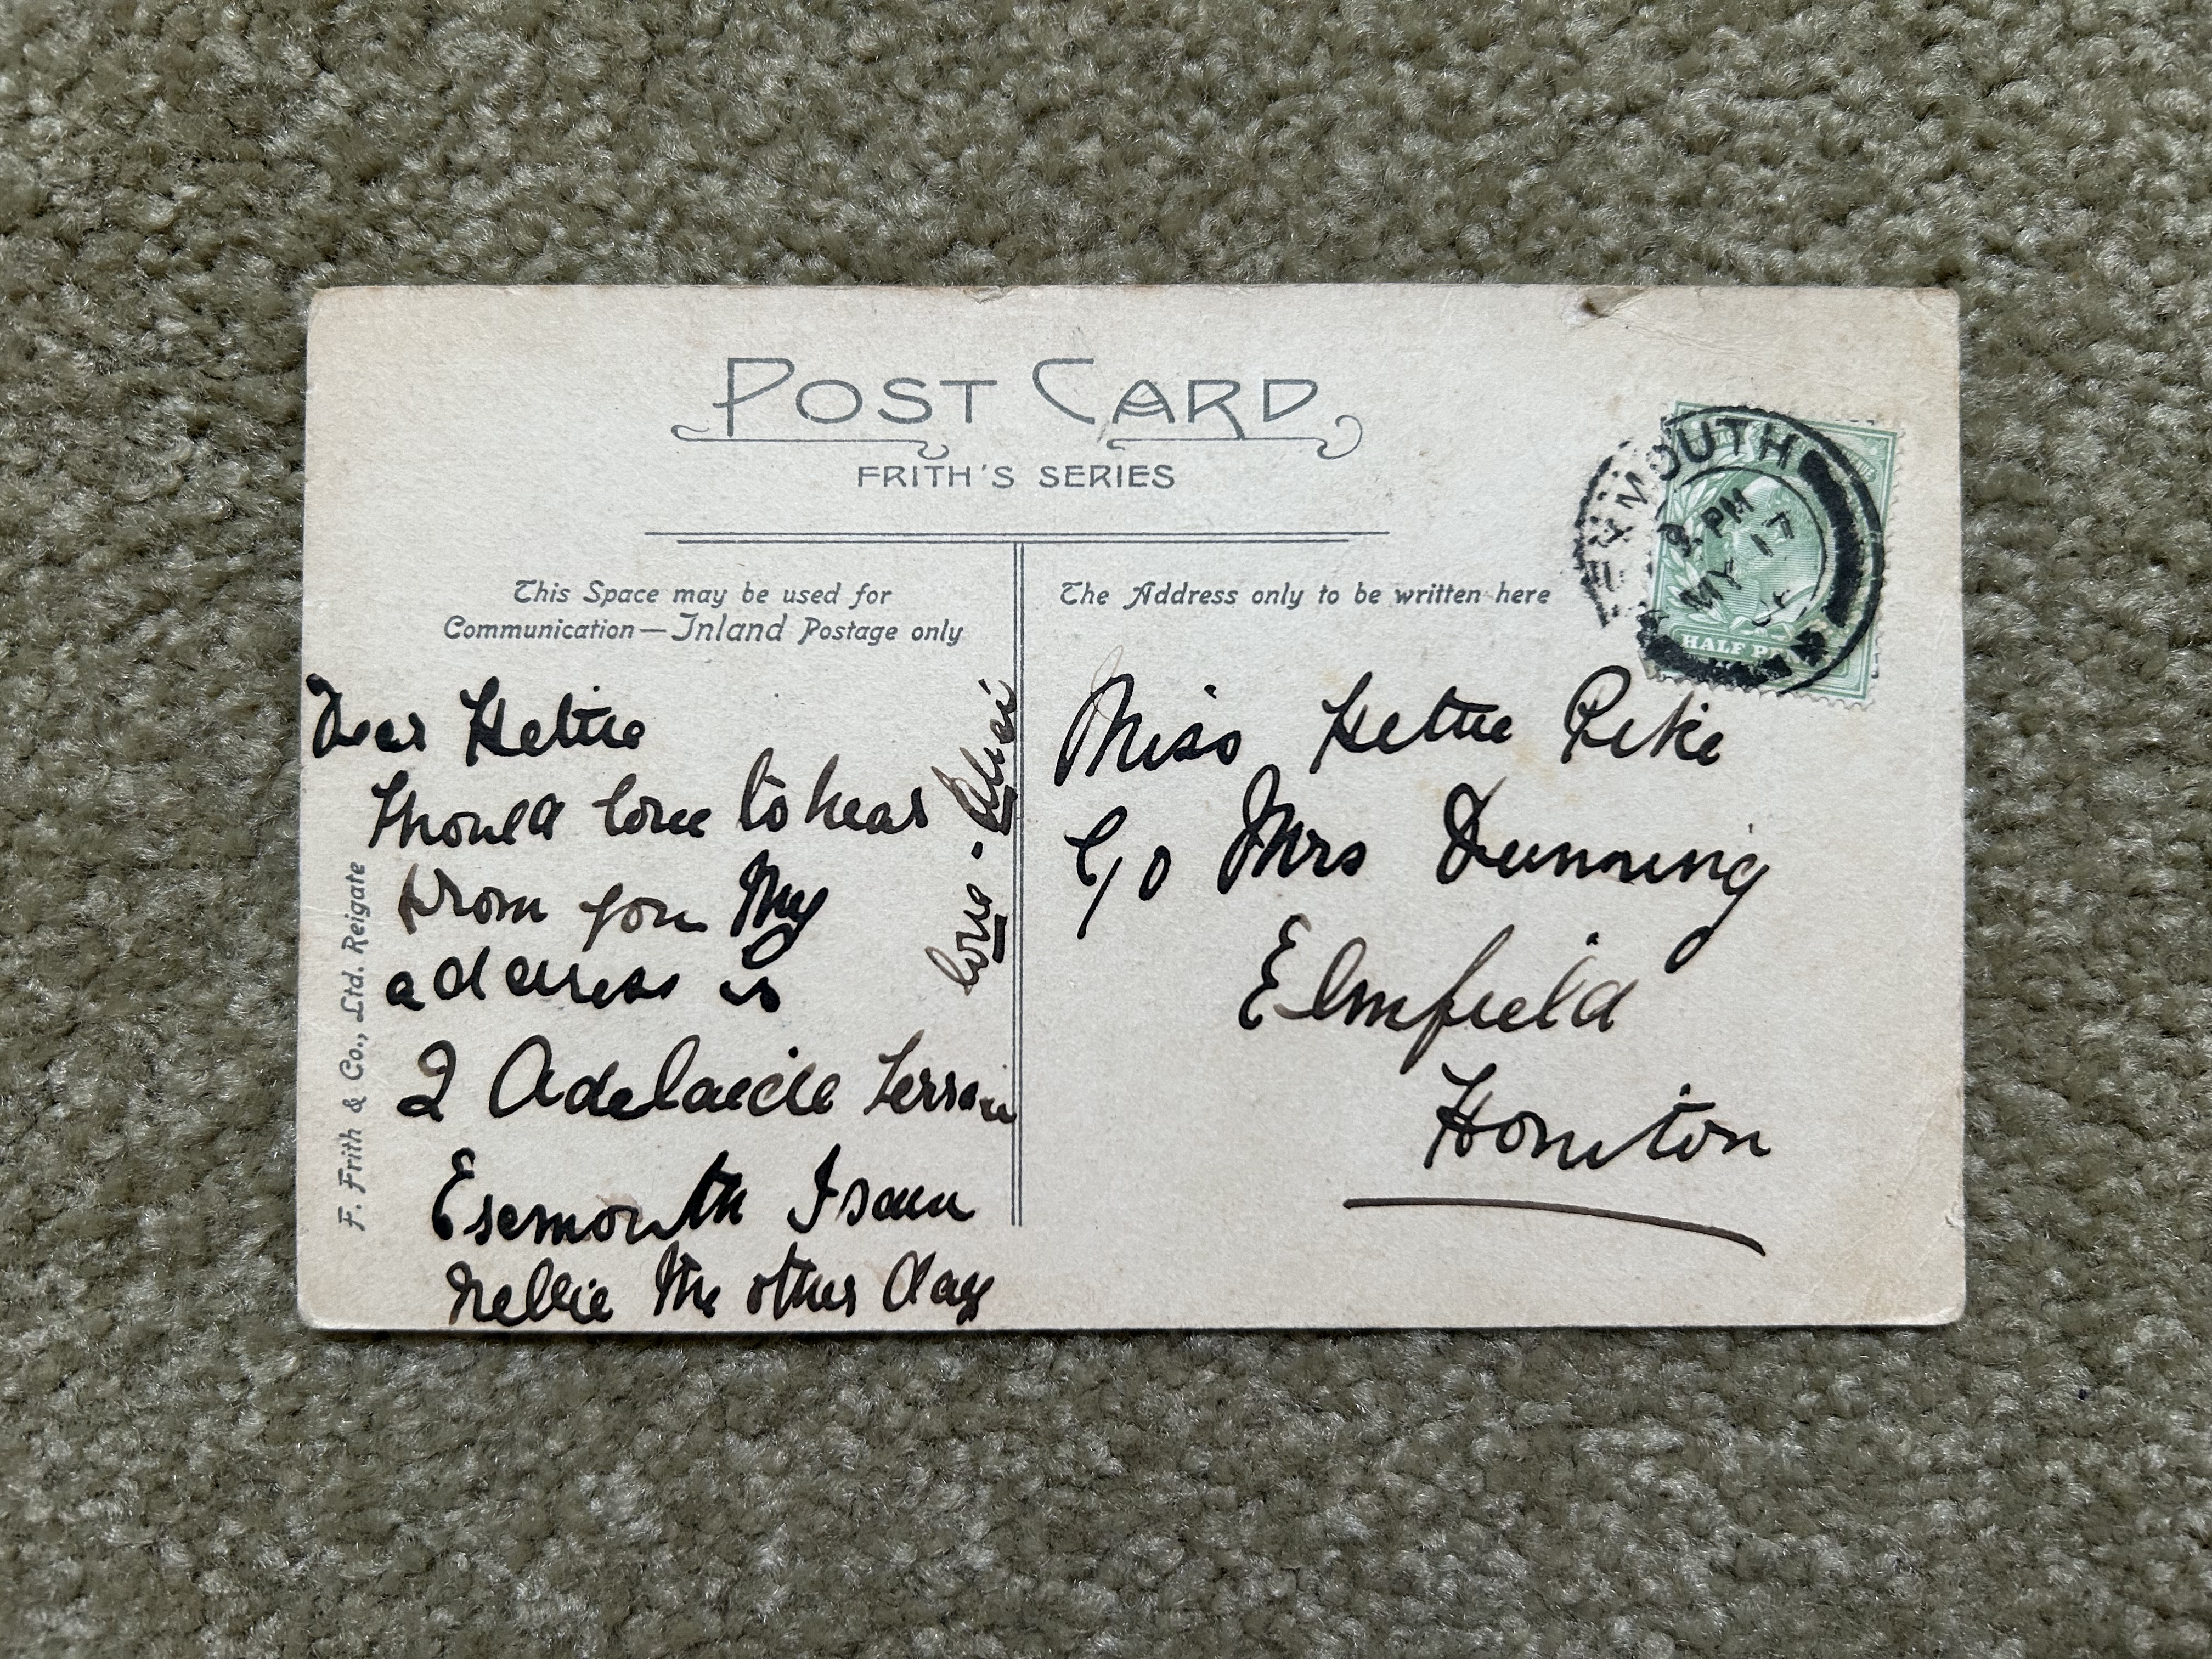 POST CARD
FRITH'S SERIES
This Space may be used for
Communication — Inland Postage only
The Address only to be written here
Dear Hettie
Should love to hear
from you My
address is
2 Adelaide Terrace
Exmouth I saw
Nellie the other day
love -
Miss Hettie Pike
C/o Mrs Dunning
Elmfield
Honiton
F. Frith & Co., Ltd. Reigate
EXMOUTH
PM
MY 17
HALF PENNY